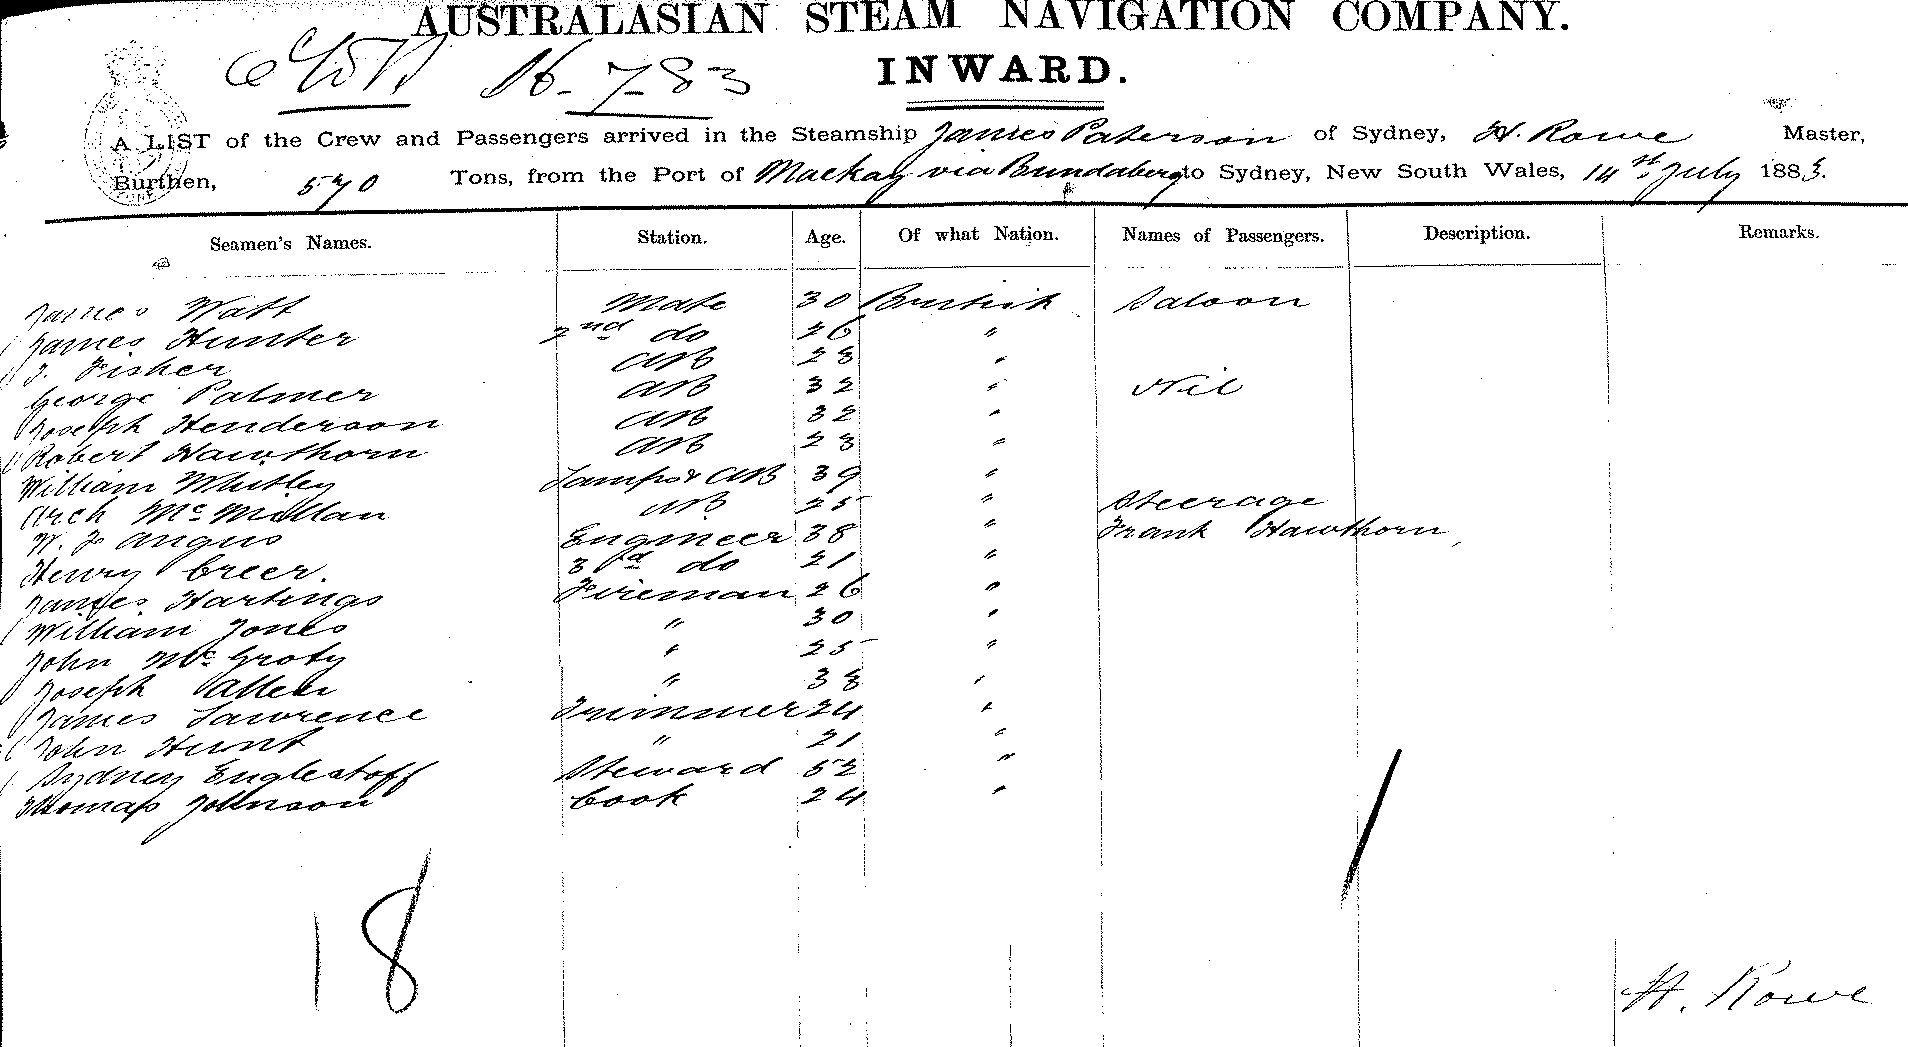 AUSTRALASIAN STEAM NAVIGATION COMPANY.
16-7-83
INWARD.
A LIST of the Crew and Passengers arrived in the Steamship James Paterson of Sydney, H. Rowe Master,
Burthen, 570 Tons, from the Port of Mackay via Bundaberg to Sydney, New South Wales, 14st July 1883.
Seamen's Names. Station. Age. Of what Nation. Names of Passengers. Description. Remarks.
James Watt Mate 30 British Saloon
James Hunter 2nd do 26 "
J. Fisher AB 28 "
George Palmer AB 32 " Nil
Joseph Henderson AB 32 "
Robert Hawthorn AB 28 "
William Whitley Lamps & AB 39 "
Arch McMillan AB 25 " Steerage
W. J Angus Engineer 38 " Frank Hawthorn
Henry Creer. 3rd do 21 "
James Hartings Fireman 26 "
William Jones " 30 "
John McGroty " 25 "
Joseph Allen " 38 "
James Lawrence Trimmer 24 "
John Hunt " 21 "
Sydney Englestoff Steward 52 "
Thomas Johnson Cook 24 "
18
1
H. Rowe